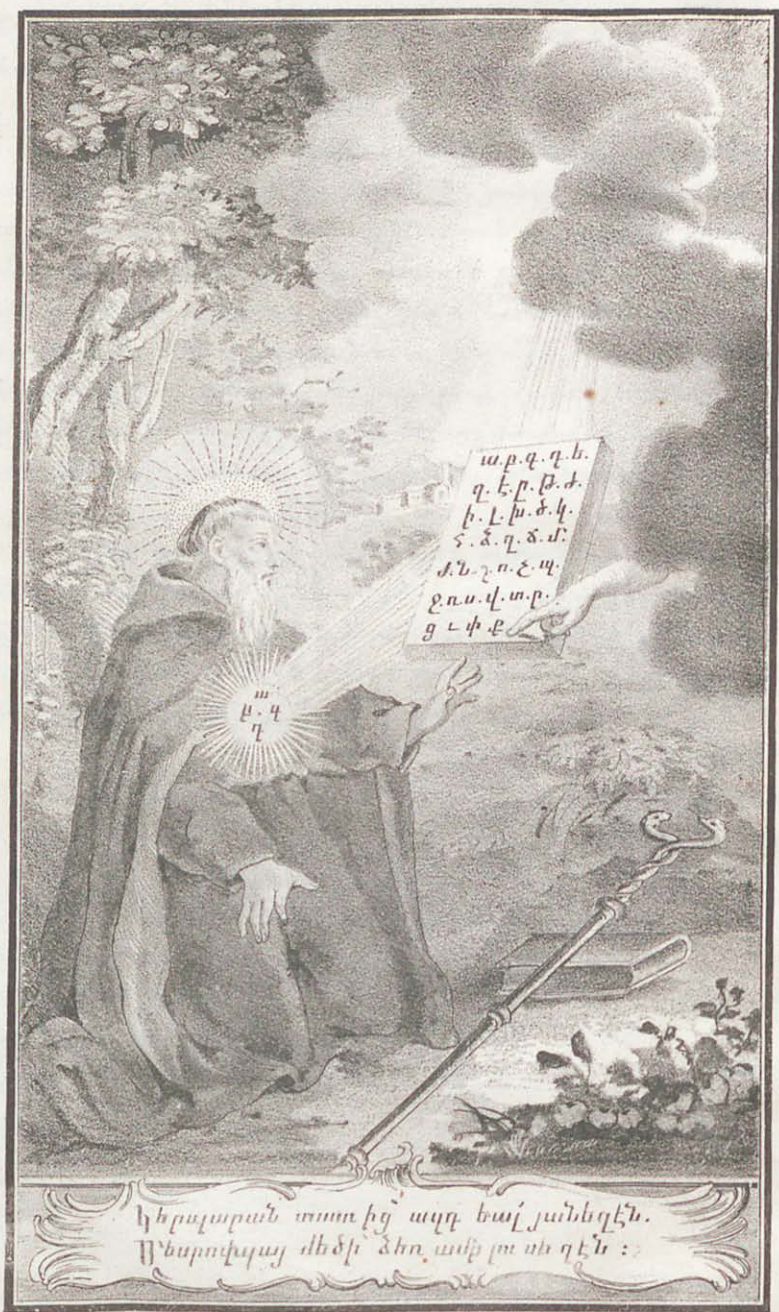 ա.բ.գ.դ.ե.
զ.է.ը.թ.ժ.
ի.լ.խ.ծ.կ.
հ.ձ.ղ.ճ.մ.
յ.ն.շ.ո.չ.պ.
ջ.ռ.ս.վ.տ.ր.
ց ւ փ ք
ա
բ . գ
դ
Կերպարան տառից՝ ազդ եալ յանեղէն.
Մեսրովպայ մեծի՝ ձեռամբ լուսեղէն :